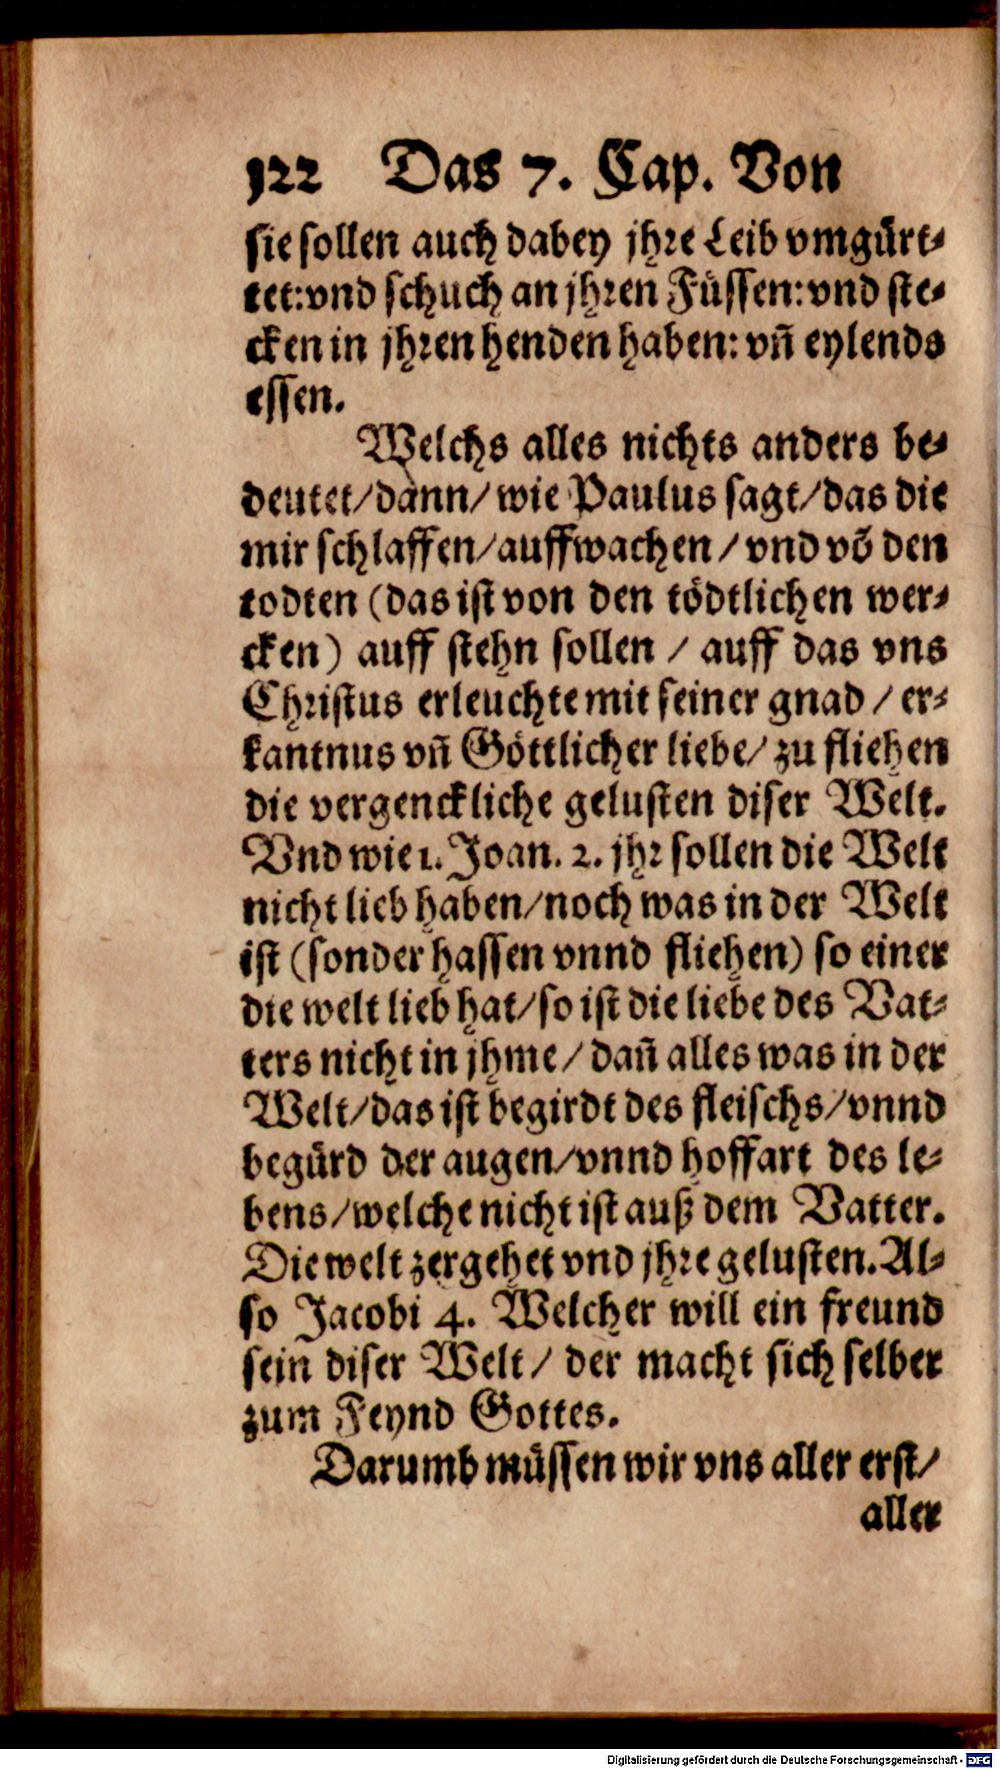 122 Das 7. Cap. Von
sie sollen auch dabey jhre Leib vmgürt⸗
tet: vnd schuch an jhren Füssen: vnd ste⸗
cken in jhren henden haben: vñ eylends
essen.
Welchs alles nichts anders be⸗
deutet/ dann/ wie Paulus sagt/ das die
mir schlaffen/ auffwachen/ vnd võ den
todten (das ist von den tödtlichen wer⸗
cken) auff stehn sollen / auff das vns
Christus erleuchte mit seiner gnad / er⸗
kantnus vñ Göttlicher liebe/ zu fliehen
die vergenckliche gelusten diser Welt.
Vnd wie 1. Joan. 2. jhr sollen die Welt
nicht lieb haben/ noch was in der Welt
ist (sonder hassen vnnd fliehen) so einer
die welt lieb hat/ so ist die liebe des Vat⸗
ters nicht in jhme/ dañ alles was in der
Welt/ das ist begirdt des fleischs/ vnnd
begürd der augen/ vnnd hoffart des le⸗
bens/ welche nicht ist auß dem Vatter.
Die welt zergehet vnd jhre gelusten. Al⸗
so Jacobi 4. Welcher will ein freund
sein diser Welt/ der macht sich selber
zum Feynd Gottes.
Darumb müssen wir vns aller erst/
aller
Digitalisierung gefördert durch die Deutsche Forschungsgemeinschaft - DFG